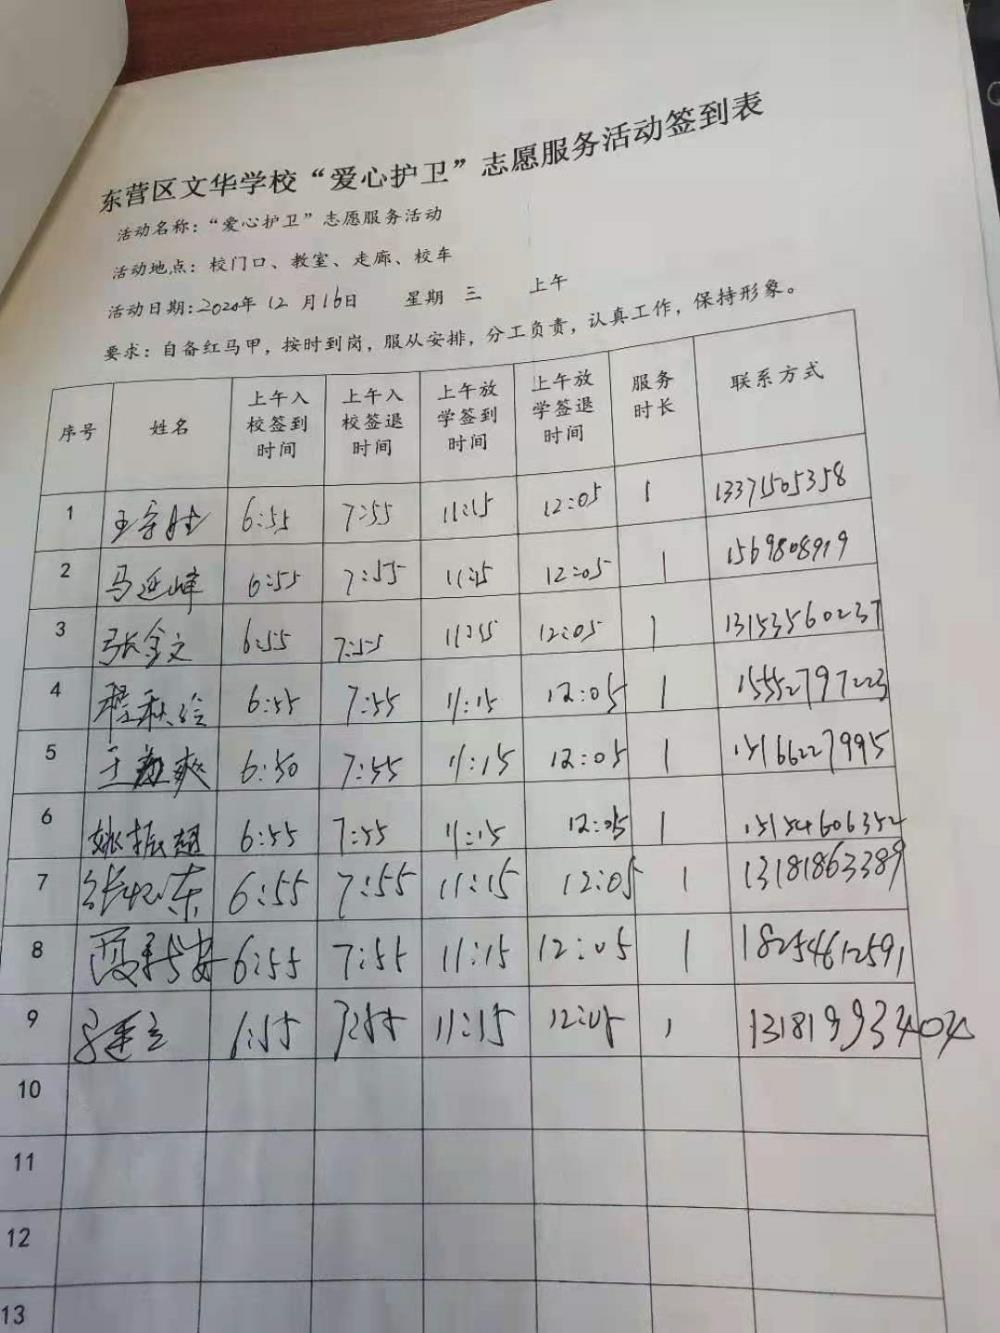 东营区文华学校“爱心护卫”志愿服务活动签到表
活动名称：“爱心护卫”志愿服务活动
活动地点：校门口、教室、走廊、校车
活动日期：2020年 12 月 16日 星期 三 上午
要求：自备红马甲，按时到岗，服从安排，分工负责，认真工作，保持形象。
序号 姓名 上午入校签到时间 上午入校签退时间 上午放学签到时间 上午放学签退时间 服务时长 联系方式
1 6:55 7:55 11:15 12:05 1 13371505358
2 马延峰 6:55 7:55 11:15 12:05 1 1569808919
3 张金文 6:55 7:55 11:15 12:05 1 13153560237
4 程秋绘 6:55 7:55 11:15 12:05 1 15552797223
5 6:50 7:55 11:15 12:05 1 15166227995
6 姚振超 6:55 7:55 11:15 12:05 1 15154606352
7 6:55 7:55 11:15 12:05 1 13181863389
8 6:55 7:55 11:15 12:05 1 18254612591
9 11:15 12:05 1
10
11
12
13